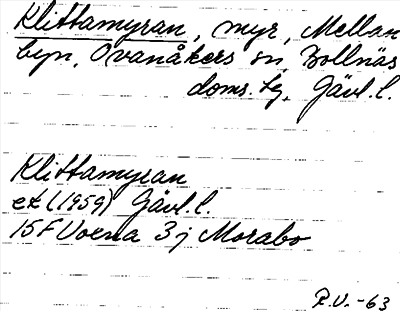 Klittamyran, myr, Mellan
byn, Ovanåkers sn, Bollnäs
doms. tg, Gävl. l.
Klittamyran
ek (1959) Gävl. l.
15F Voxna 3j Morabo
R.V. -63